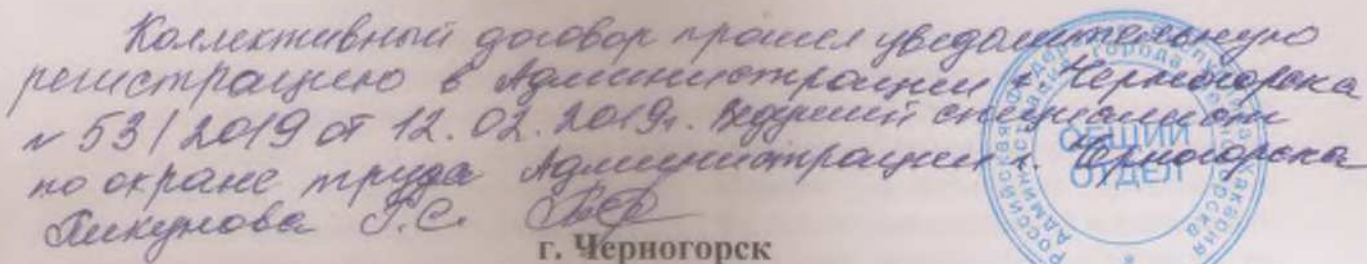 Коллективный договор прошел уведомительную
регистрацию в Администрации г. Черногорска
№ 53/2019 от 12.02.2019г. Ведущий специалист
по охране труда Администрации г. Черногорска
Г.С.
г. Черногорск
ОБЩИЙ
ОТДЕЛ